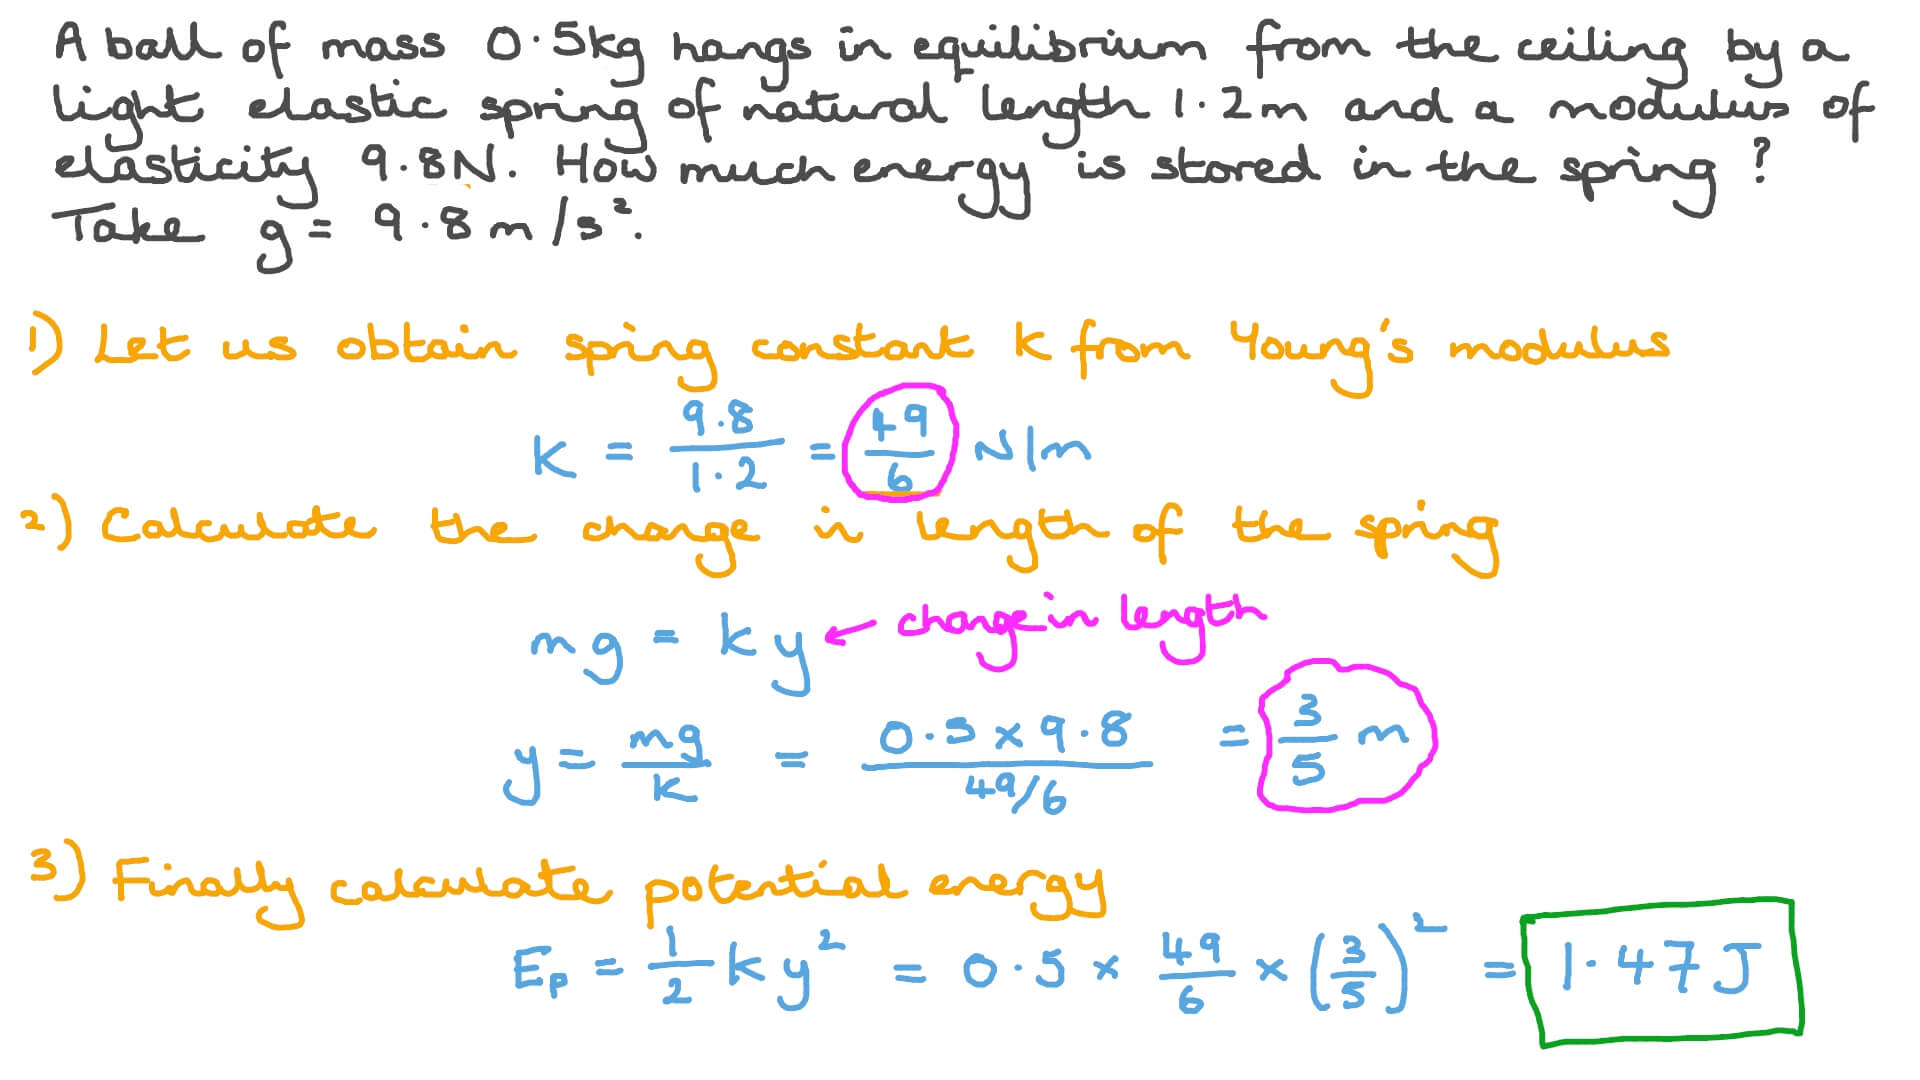 A ball of mass 0.5kg hangs in equilibrium from the ceiling by a
light elastic spring of natural length 1.2m and a modulus of
elasticity 9.8N. How much energy is stored in the spring?
Take g = 9.8 m/s².
1) Let us obtain spring constant K from Young's modulus
K = 9.8/1.2 = 49/6 N/m
2) Calculate the change in length of the spring
mg = ky ← change in length
y = mg/k = 0.5 × 9.8 / 49/6 = 3/5 m
3) Finally calculate potential energy
Ep = 1/2 ky² = 0.5 × 49/6 × (3/5)² = 1.47J